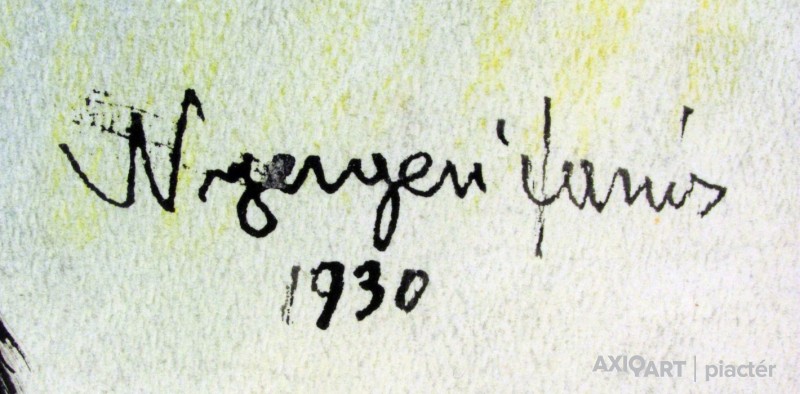 Nyergesi János
1930
AXIOART | piactér